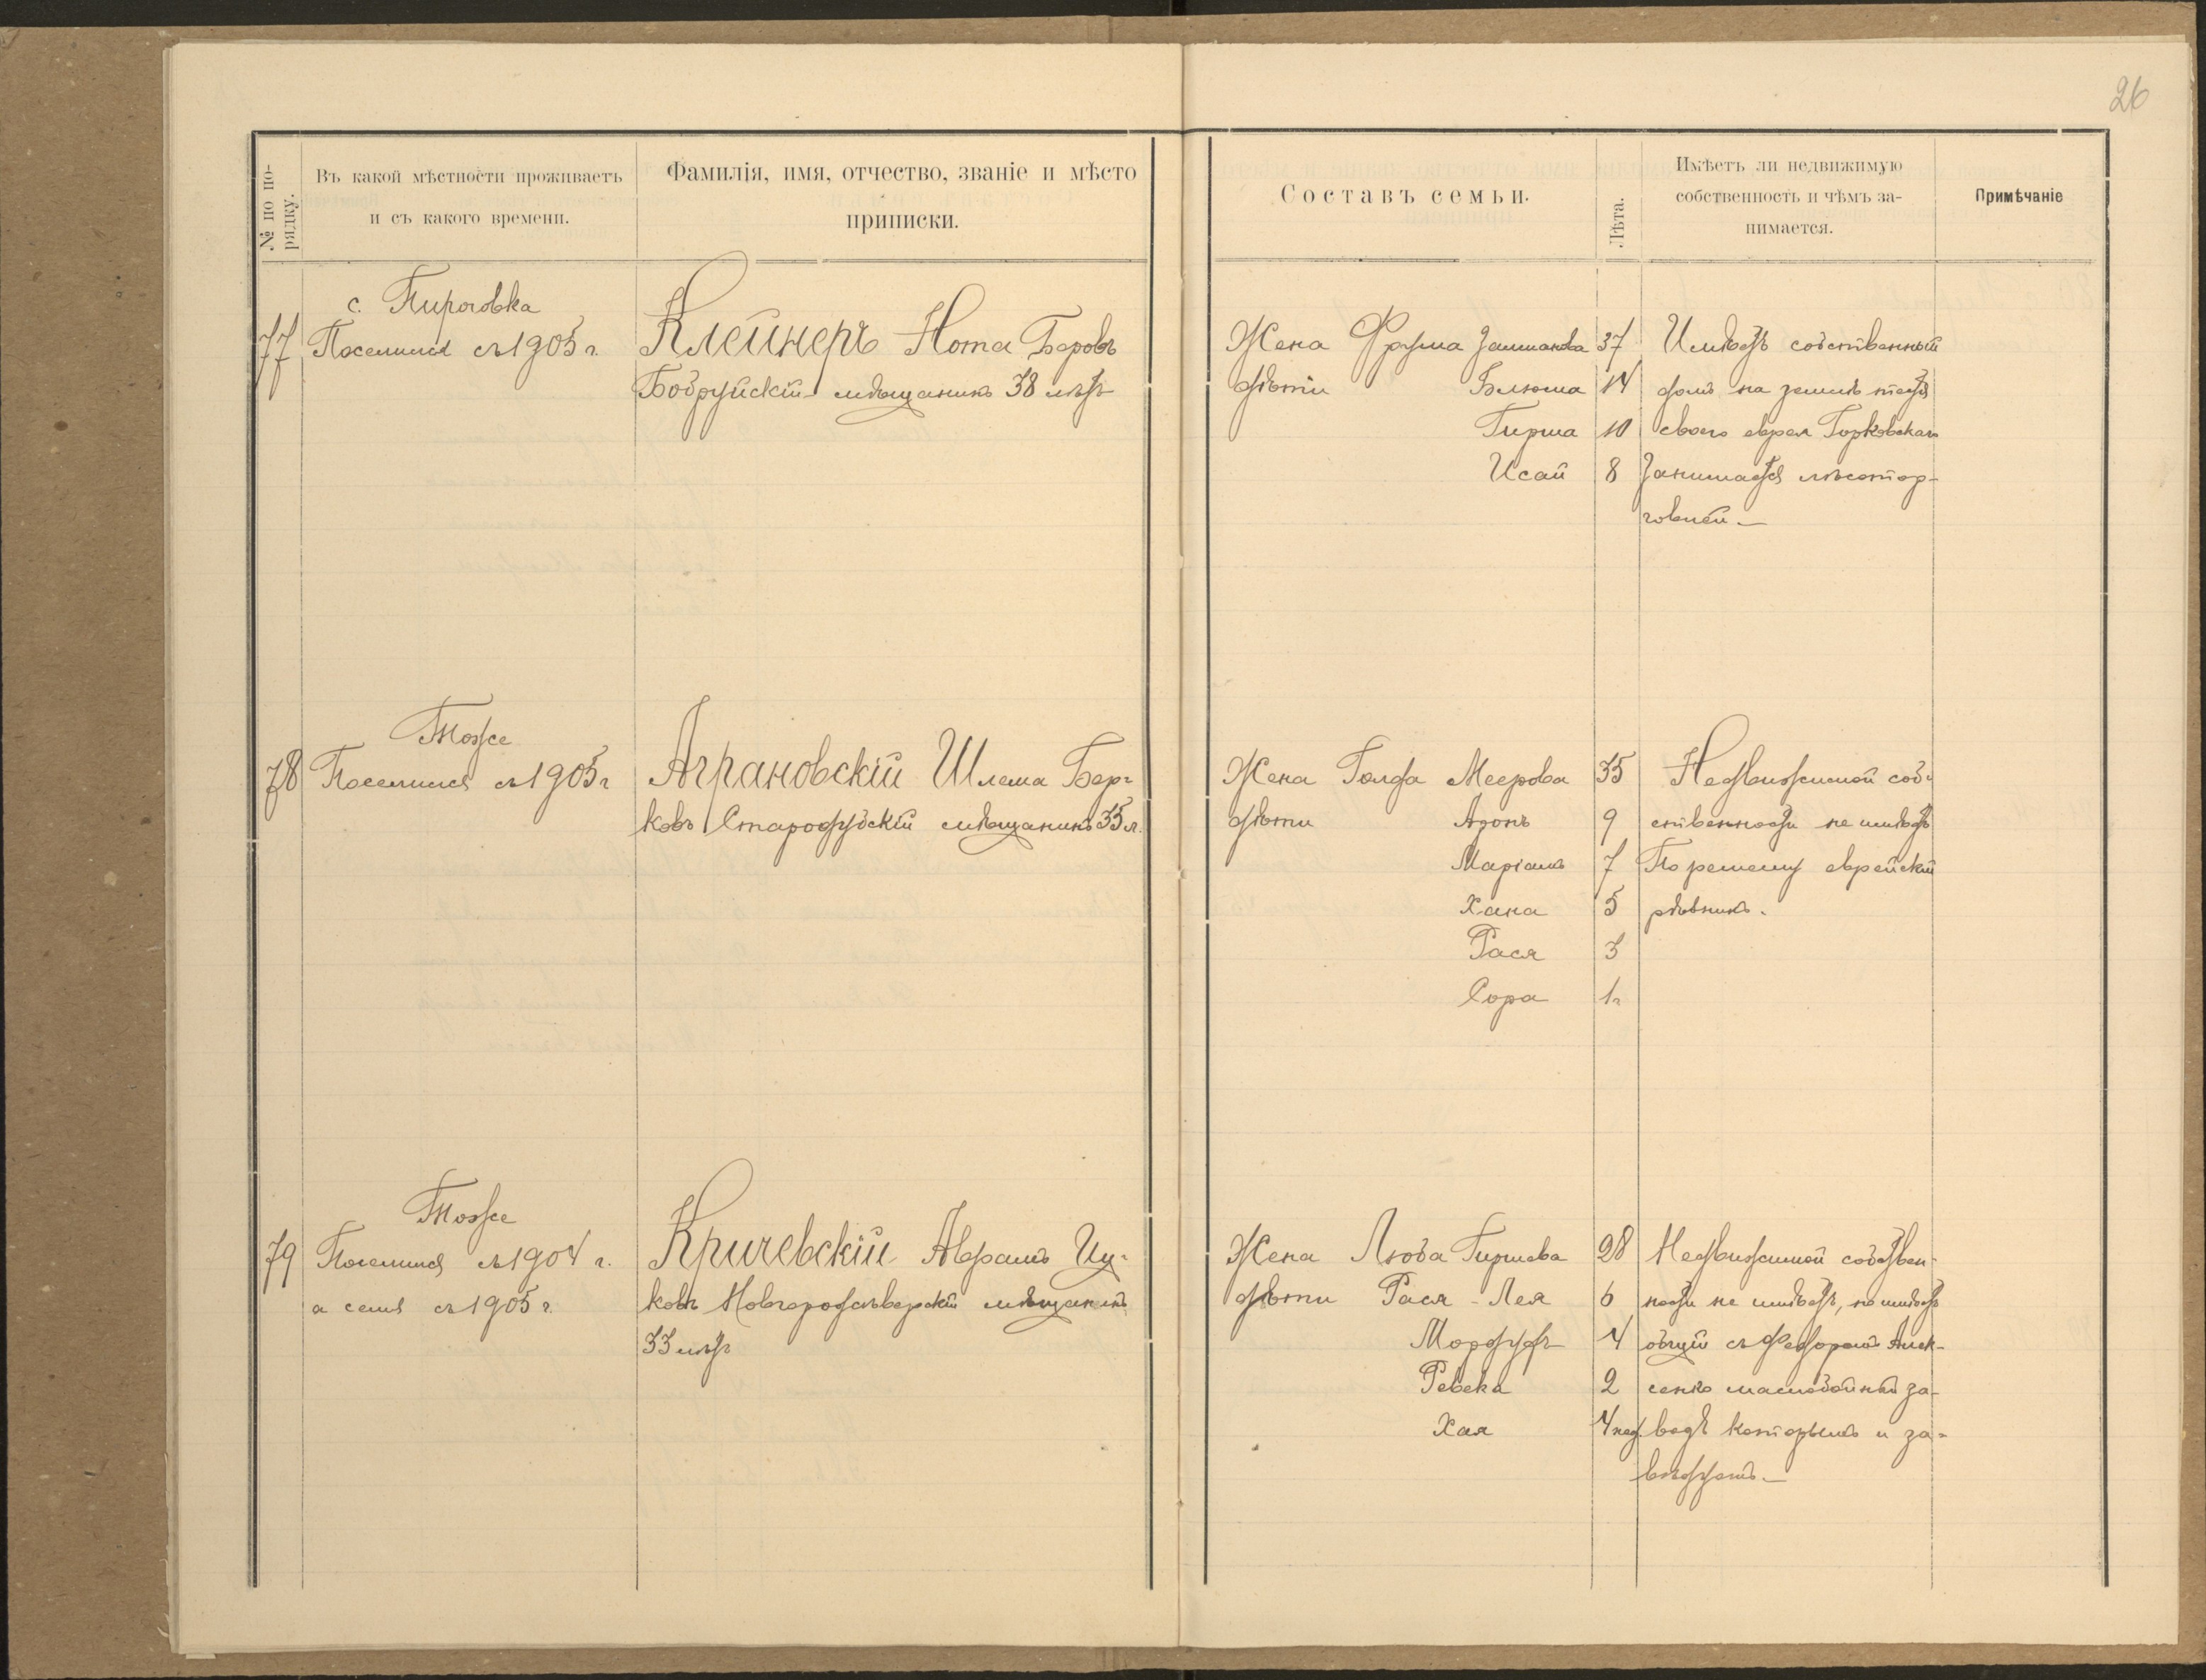 26
№ по по-
рядку.
Въ какой мѣстности проживаетъ
и съ какого времени.
Фамилія, имя, отчество, званіе и мѣсто
приписки.
Составъ семьи.
Лѣта.
Имѣетъ ли недвижимую
собственность и чѣмъ за-
нимается.
Примѣчаніе
с. Пироговка
77 Поселился съ 1905 г.
Клейнеръ Нота Беровъ
Бобруйскій мѣщанинъ 38 лѣтъ
Жена Фрума Залманова 37
дѣти Блюма 14
Гирша 10
Исай 8
Имѣетъ собственный
домъ на землѣ тестя
своего еврея Горковскаго
Занимается лѣсотор-
говлей.
Тоже
78 Поселился съ 1905 г
Аграновскій Шлема Бер-
ковъ Стародубскій мѣщанинъ 35 л.
Жена Голда Меерова 35
дѣти Азонъ 9
Маріамъ 7
Хана 5
Рася 3
Сора 1 г
Недвижимой соб-
ственности не имѣетъ
По ремеслу еврейскій
рѣзникъ.
Тоже
79 Поселился съ 1904 г.
а семья съ 1905 г.
Кричевскій Абрамъ Иц-
ковъ Новгородсѣверскій мѣщанинъ
33 лѣтъ
Жена Люба Гиршева 28
дѣти Рася-Лея 6
Мордухъ 4
Ревека 2
Хая 4 нед.
Недвижимой собствен-
ности не имѣетъ, но имѣетъ
общій съ Федоромъ Алек-
сенко маслобойный за-
водъ которымъ и за-
вѣдуетъ.